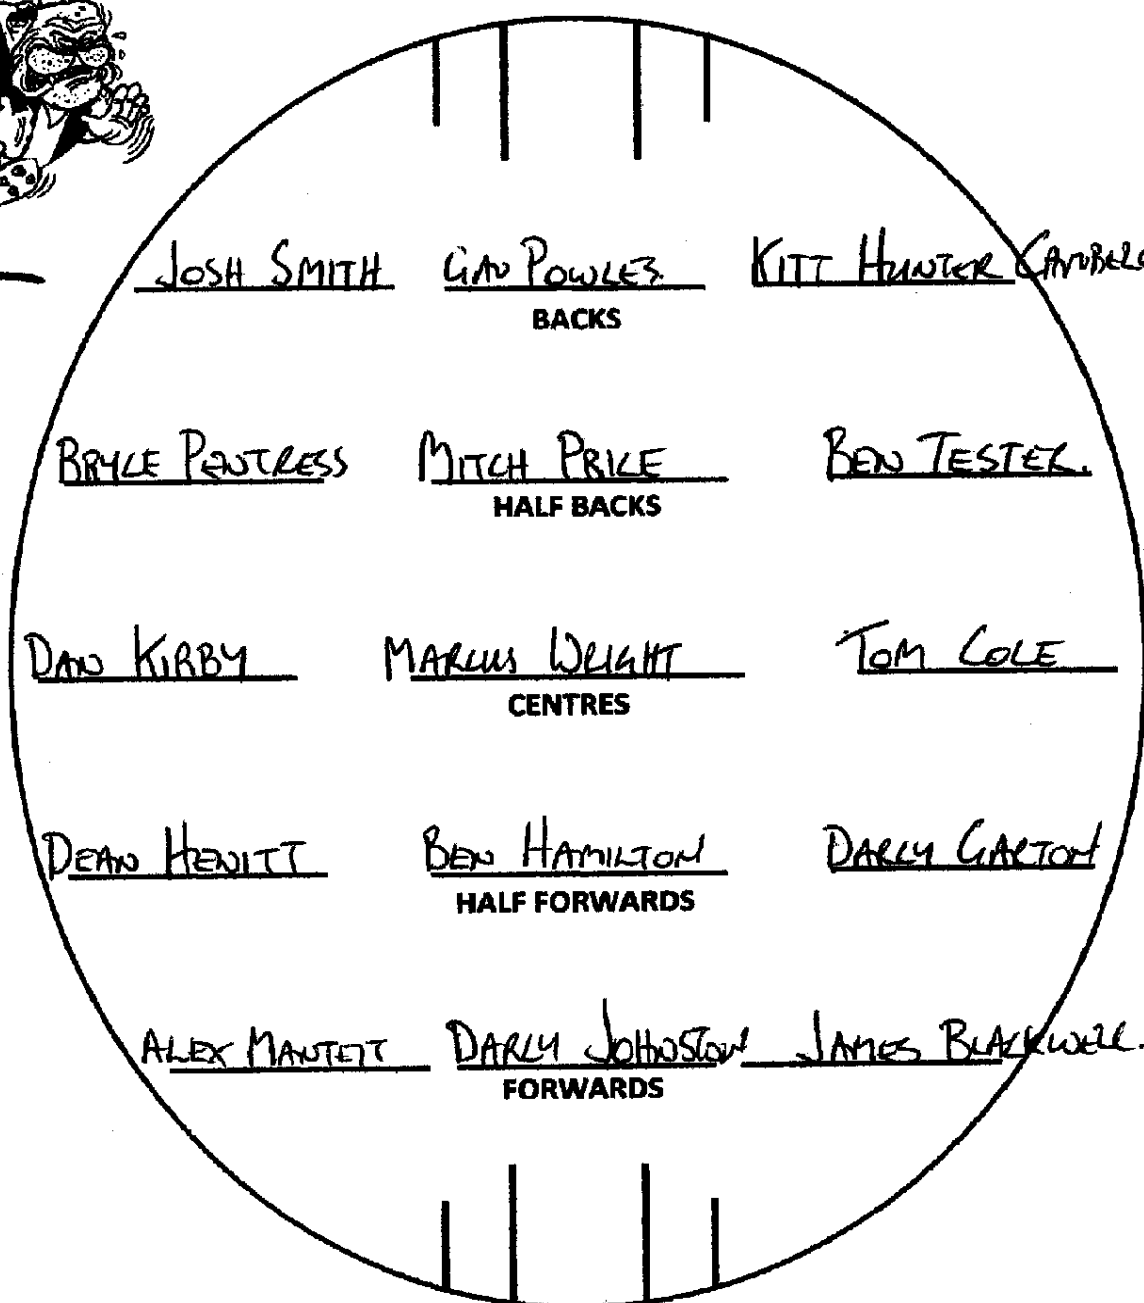 JOSH SMITH GAV POWLES. KITT HUNTER
BACKS
BRYCE PENTRESS MITCH PRICE BEN TESTER.
HALF BACKS
DAN KIRBY MARCUS WRIGHT TOM COLE
CENTRES
DEAN HEWITT BEN HAMILTON DARCY GARTON
HALF FORWARDS
ALEX MANTETT DARCY JOHNSTON JAMES BLACKWELL.
FORWARDS